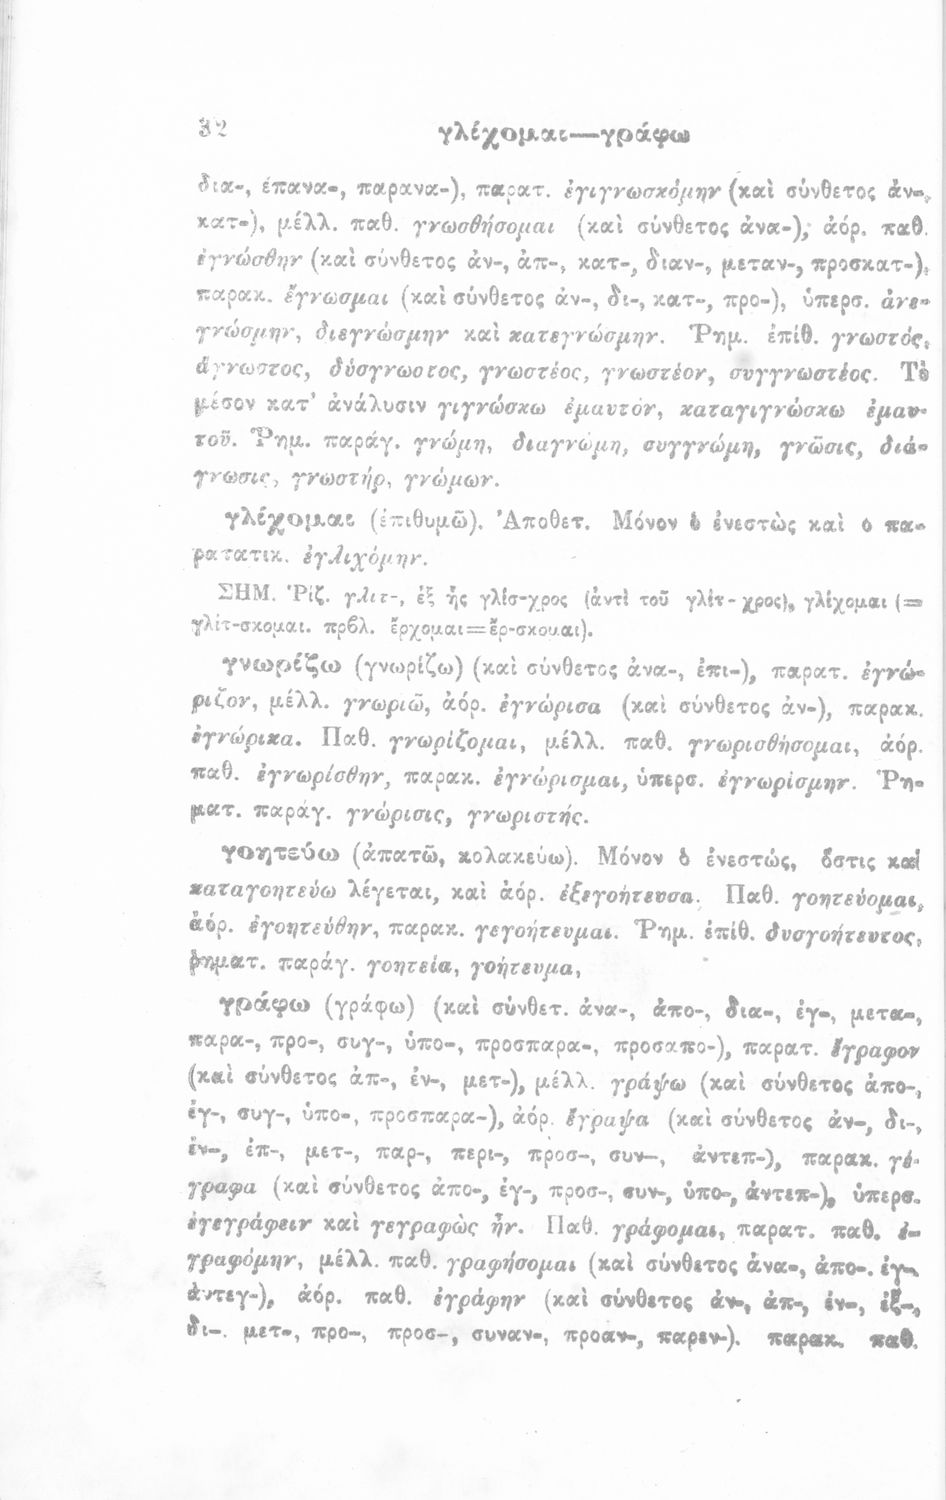 32 γλέχομαι—γράφω
δια-, ἐπανα-, παρανα-), παρατ. ἐγιγνωσκόμην (καὶ σύνθετος ἀν-,
κατ-), μέλλ. παθ. γνωσθήσομαι (καὶ σύνθετος ἀνα-), ἀόρ. παθ.
ἐγνώσθην (καὶ σύνθετος ἀν-, ἀπ-, κατ-, διαν-, μεταν-, προσκατ-),
παρακ. ἔγνωσμαι (καὶ σύνθετος ἀν-, δι-, κατ-, προ-), ὑπερσ. ἀνε-
γνώσμην, διεγνώσμην καὶ κατεγνώσμην. Ῥημ. ἐπίθ. γνωστός,
ἄγνωστος, δύσγνωστος, γνωστέος, γνωστέον, συγγνωστέος. Τὸ
μέσον κατ' ἀνάλυσιν γιγνώσκω ἐμαυτόν, καταγιγνώσκω ἐμαυ-
τοῦ. Ῥημ. παράγ. γνώμη, διαγνώμη, συγγνώμη, γνῶσις, διά-
γνωσις, γνωστήρ, γνώμων.
γλίχομαι (ἐπιθυμῶ). Ἀποθετ. Μόνον ὁ ἐνεστὼς καὶ ὁ πα-
ρατατικ. ἐγλιχόμην.
ΣΗΜ. Ῥίζ. γλιτ-, ἐξ ἧς γλίσ-χρος (ἀντὶ τοῦ γλίτ-χρος), γλίχομαι (=
γλίτ-σκομαι. πρβλ. ἔρχομαι=ἔρ-σκομαι).
γνωρίζω (γνωρίζω) (καὶ σύνθετος ἀνα-, ἐπι-), παρατ. ἐγνώ-
ριζον, μέλλ. γνωριῶ, ἀόρ. ἐγνώρισα (καὶ σύνθετος ἀν-), παρακ.
ἐγνώρικα. Παθ. γνωρίζομαι, μέλλ. παθ. γνωρισθήσομαι, ἀόρ.
παθ. ἐγνωρίσθην, παρακ. ἐγνώρισμαι, ὑπερσ. ἐγνωρίσμην. Ῥη-
ματ. παράγ. γνώρισις, γνωριστής.
γοητεύω (ἀπατῶ, κολακεύω). Μόνον ὁ ἐνεστώς, ὅστις καὶ
καταγοητεύω λέγεται, καὶ ἀόρ. ἐξεγοήτευσα. Παθ. γοητεύομαι,
ἀόρ. ἐγοητεύθην, παρακ. γεγοήτευμαι. Ῥημ. ἐπίθ. δυσγοήτευτος,
ῥηματ. παράγ. γοητεία, γοήτευμα,
γράφω (γράφω) (καὶ σύνθετ. ἀνα-, ἀπο-, δια-, ἐγ-, μετα-,
παρα-, προ-, συγ-, ὑπο-, προσπαρα-, προσαπο-), παρατ. ἔγραφον
(καὶ σύνθετος ἀπ-, ἐν-, μετ-), μέλλ. γράψω (καὶ σύνθετος ἀπο-,
ἐγ-, συγ-, ὑπο-, προσπαρα-), ἀόρ. ἔγραψα (καὶ σύνθετος ἀν-, δι-,
ἐν-, ἐπ-, μετ-, παρ-, περι-, προσ-, συν-, ἀντεπ-), παρακ. γέ-
γραφα (καὶ σύνθετος ἀπο-, ἐγ-, προσ-, συν-, ὑπο-, ἀντεπ-), ὑπερσ.
ἐγεγράφειν καὶ γεγραφὼς ἦν. Παθ. γράφομαι, παρατ. παθ. ἐ-
γραφόμην, μέλλ. παθ. γραφήσομαι (καὶ σύνθετος ἀνα-, ἀπο-. ἐγ-,
ἀντεγ-), ἀόρ. παθ. ἐγράφην (καὶ σύνθετος ἀν-, ἀπ-, ἐν-, ἐξ-,
δι-. μετ-, προ-, προσ-, συναν-, προαν-, παρεν-). παρακ. παθ.